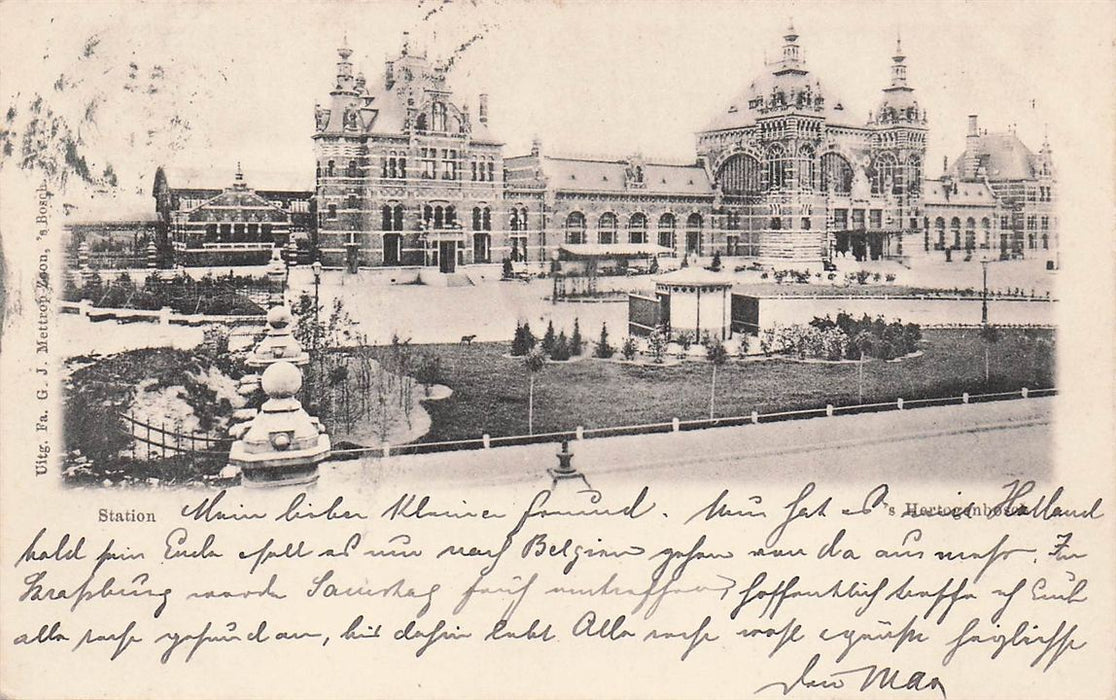 Uitg. Fa. G. J. Mettrop Zoon, 's Bosch.
Station
's Hertogenbosch
Mein lieber kleiner Freund. Nun hat es in Holland
bald sein Ende & soll es nun nach Belgien gehen von da aus mehr. In
Straßburg werde Samstag früh eintreffen, hoffentlich treffe ich Euch
alle recht gesund an, bis dahin lebt Alle recht wohl & grüßt herzlichst
Dein Max